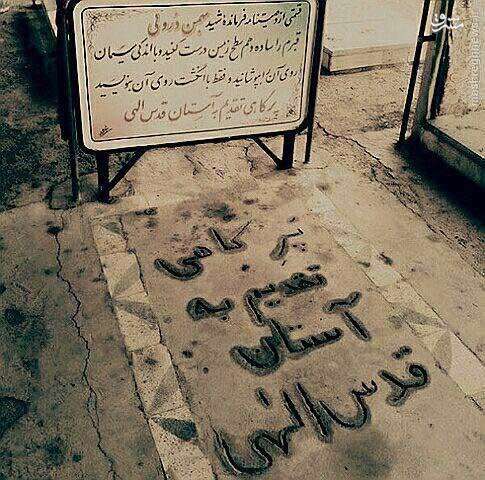 قسمتی از وصیتنامه فرمانده شهید بهمن درولی
قبرم را ساده و هم سطح زمین درست کنید و با اندکی سیمان
روی آن را بپوشانید و فقط با انگشت روی آن بنویسید
پر کاهی تقدیم به آستان قدس الهی
پر کاهی
تقدیم به
آستان
قدس الهی
مشرق